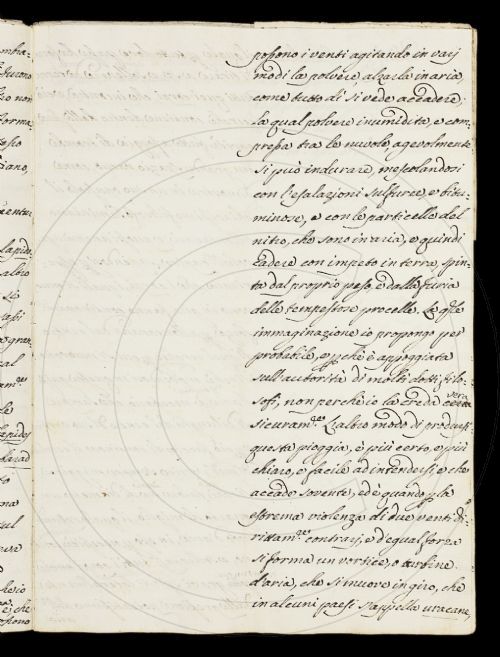 possono i venti agitando in varj
modi la polvere alzarla in aria,
come tutto dì si vede accadere;
la qual polvere inumidita, e com-
pressa tra le nuvole, agevolmente
si può indurare, mescolandosi
con l'esalazioni sulfuree, e bitu-
minose, e con le particelle del
nitro, che sono in aria, e quindi
cadere con impeto in terra, spin-
ta dal proprio peso, e dalla furia
delle tempestose procelle. La qle
immaginazione io propongo per
probabile, e pchè è appoggiata
sull'autorità di molti dotti filo-
sofi, non perchè io la creda
sicuram.te L'altro modo di produrre
questa pioggia, è più certo, e più
chiaro, e facile ad intendersi, e che
accade sovente, ed è quando p la
estrema violenza di due venti di-
rittam.te contrarj, e d'egual forza
si forma un vortice, o turbine
d'aria, che si muove in giro, che
in alcuni paesi s'appella uracane,